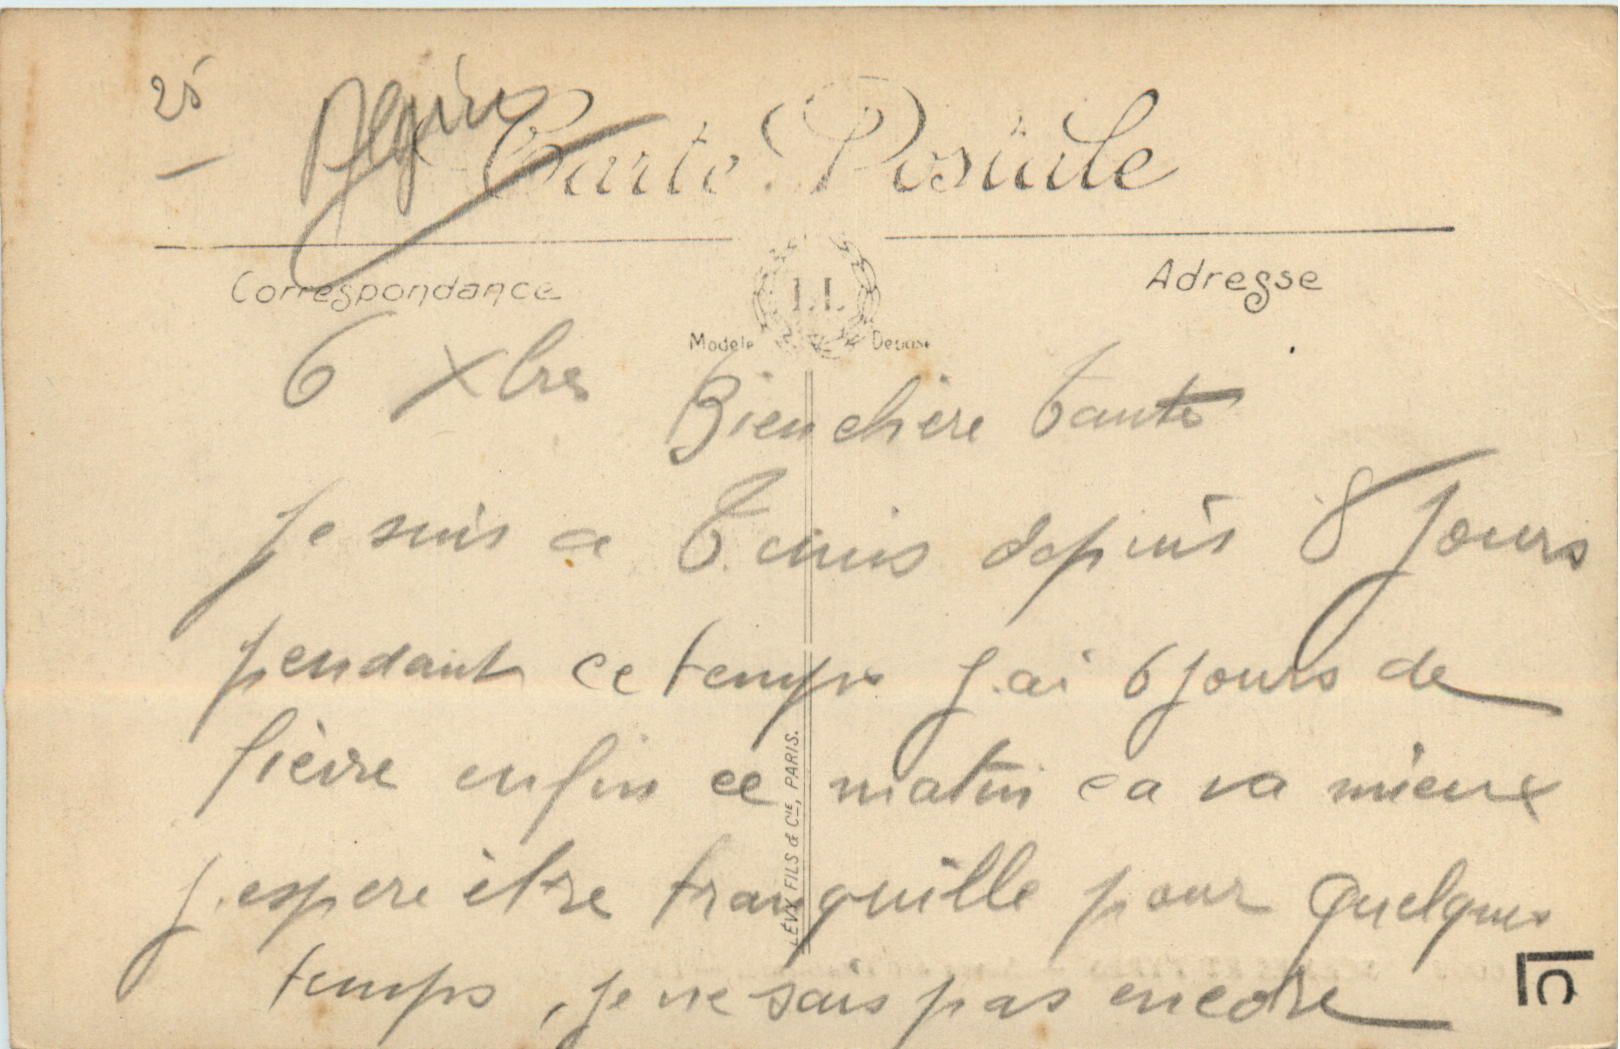 25
Algérie
Carte Postale
Correspondance
Adresse
LL
Modèle Déposé
6 Xbre
Bien chère Tante
Je suis a Tunis depuis 8 Jours
pendant ce temps J.ai 6 jours de
fièvre enfin ce matin ca va mieux
J.espere être tranquille pour quelques
temps, je ne sais pas encore
LÉVY FILS & Cie, PARIS.